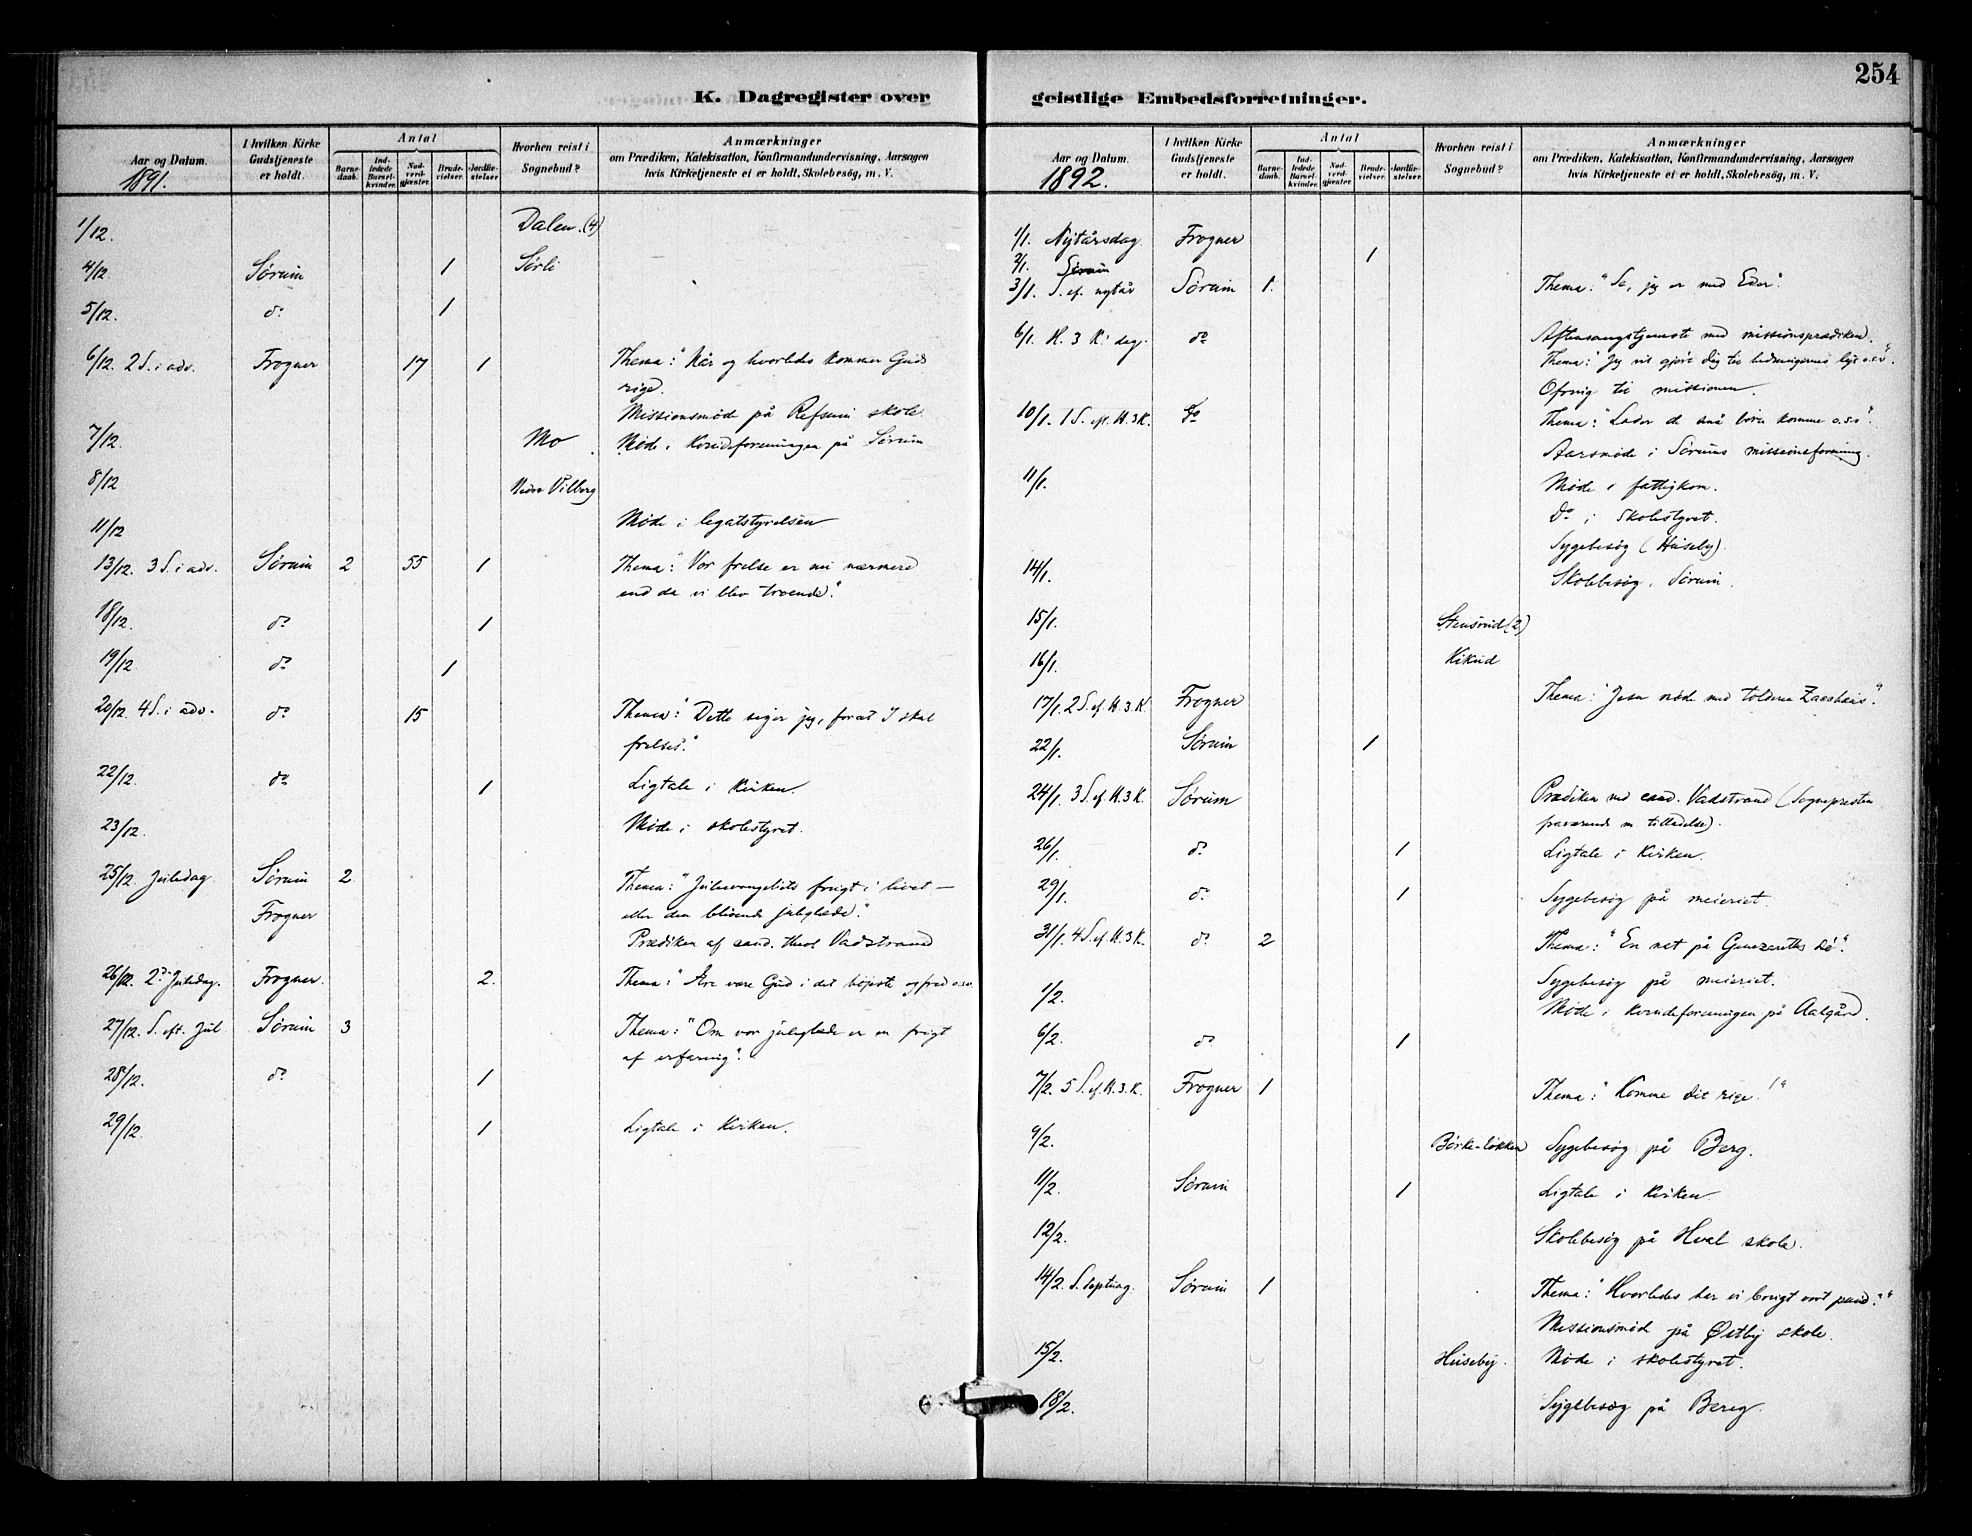 254
K. Dagregister over
Aar og Datum. 1891.
I hvilken Kirke Gudstjeneste er holdt.
Antal
Barnedaab.
Indledede Barselkvinder.
Nadverdgjester.
Brudevielser.
Jordfæstelser.
Hvorhen reist i Sognebud?
Anmærkninger
om Prædiken, Katekisation, Konfirmandundervisning, Aarsagen
hvis Kirketjeneste ei er holdt, Skolebesøg, m. V.
1/12. Dalen. (4)
4/12 Sørum 1 Sørli
5/12. do 1
6/12. 2 S. i adv. Frogner 17 1 Thema: "Når og hvorledes kommer Guds
rige.
Missionsmøde på Refsum skole.
7/12. Mo Møde i kvindeforeningen på Sørum
8/12 Nedre Vilberg
11/12 Møde i legatstyrelsen
13/12. 3 S. i adv. Sørum 2 55 1 Thema: "Vor frelse er nu nærmere
end da vi blev troende."
18/12. do 1
19/12. do 1
20/12. 4 S. i adv. do 15 Thema: "Dette siger jeg, forat I skal
frelses."
22/12. do 1 Ligtale i kirken.
23/12. Møde i skolestyret.
25/12. Juledag Sørum 2 Thema: "Juleevangeliets frugt i livet —
eller den blivende juleglæde."
Frogner Prædiken af cand. theol Vadstrand
26/12. 2den Juledag. Frogner. 2. Thema: "Ære være Gud i det høieste og fred o.s.v.
27/12. S. eft. Jul Sørum 3 Thema: "Om vor juleglæde er en frugt
af erfaring".
28/12. do 1
29/12. 1 Ligtale i kirken.
geistlige Embedsforretninger.
Aar og Datum. 1892.
I hvilken Kirke Gudstjeneste er holdt.
Antal
Barnedaab.
Indledede Barselkvinder.
Nadverdgjester.
Brudevielser.
Jordfæstelser.
Hvorhen reist i Sognebud?
Anmærkninger
om Prædiken, Katekisation, Konfirmandundervisning, Aarsagen
hvis Kirketjeneste ei er holdt, Skolebesøg, m. V.
1/1. Nytårsdag. Frogner
2/1. Sørum 1
3/1. S. ef. nytår Sørum 1. Thema: "Se, jeg er med Eder".
6/1. H. 3 K. dag. do Aftensangstjeneste med missionsprædiken.
Thema: "Jeg vil gjøre dig til hedningernes lys o.s.v".
Ofring til missionen.
10/1. 1 S. eft. H. 3 K. do Thema: "Lader de små børn komme o.s.v".
Aarsmøde i Sørums missionsforening.
11/1. Møde i fattigkom.
do i skolestyret.
Sygebesøg (Huseby).
14/1. Skolebesøg, Sørum.
15/1. Stensrud (2)
16/1. Kikud
17/1. 2 S. ef. H. 3. K. Frogner Thema: "Jesu møde med tolderen Zacchæus".
22/1. Sørum 1
24/1. 3 S. ef. H. 3 K. Sørum Prædiken ved cand. Vadstrand (Sognepresten
fraværende m. tilladelse).
26/1. do 1 Ligtale i kirken.
29/1. do 1 Sygebesøg på meieriet.
31/1. 4 S. ef. H. 3 K. do 2 Thema: "En nat på Genezareths sø".
1/2. Sygebesøg på meieriet.
Møde i kvindeforeningen på Aalgård.
6/2. do 1
7/2. 5 S. ef. H. 3. K. Frogner 1 Thema: "Komme dit rige!"
9/2. Børke-løkken Sygebesøg på Berg.
11/2. Sørum 1 Ligtale i kirken.
12/2. Skolebesøg på Hval skole.
14/2. S. septuag. Sørum 1 Thema: "Hvorledes har vi brugt vort pund?"
Missionsmøde på Østby skole.
15/2. Huseby. Møde i skolestyret.
18/2. Sygebesøg på Berg.